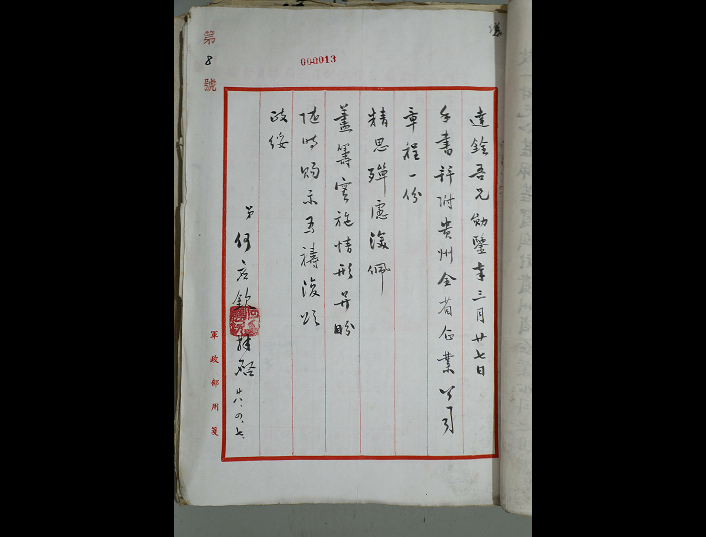 第8號
000013
達銓吾兄勛鑒奉三月廿七日
手書并附貴州全省企業公司
章程一份
精思殫慮湥佩
藎籌實施情形并盼
隨時賜示為禱復頌
政綏
弟何應欽拜啓 廿八、四、七、
軍政部用箋